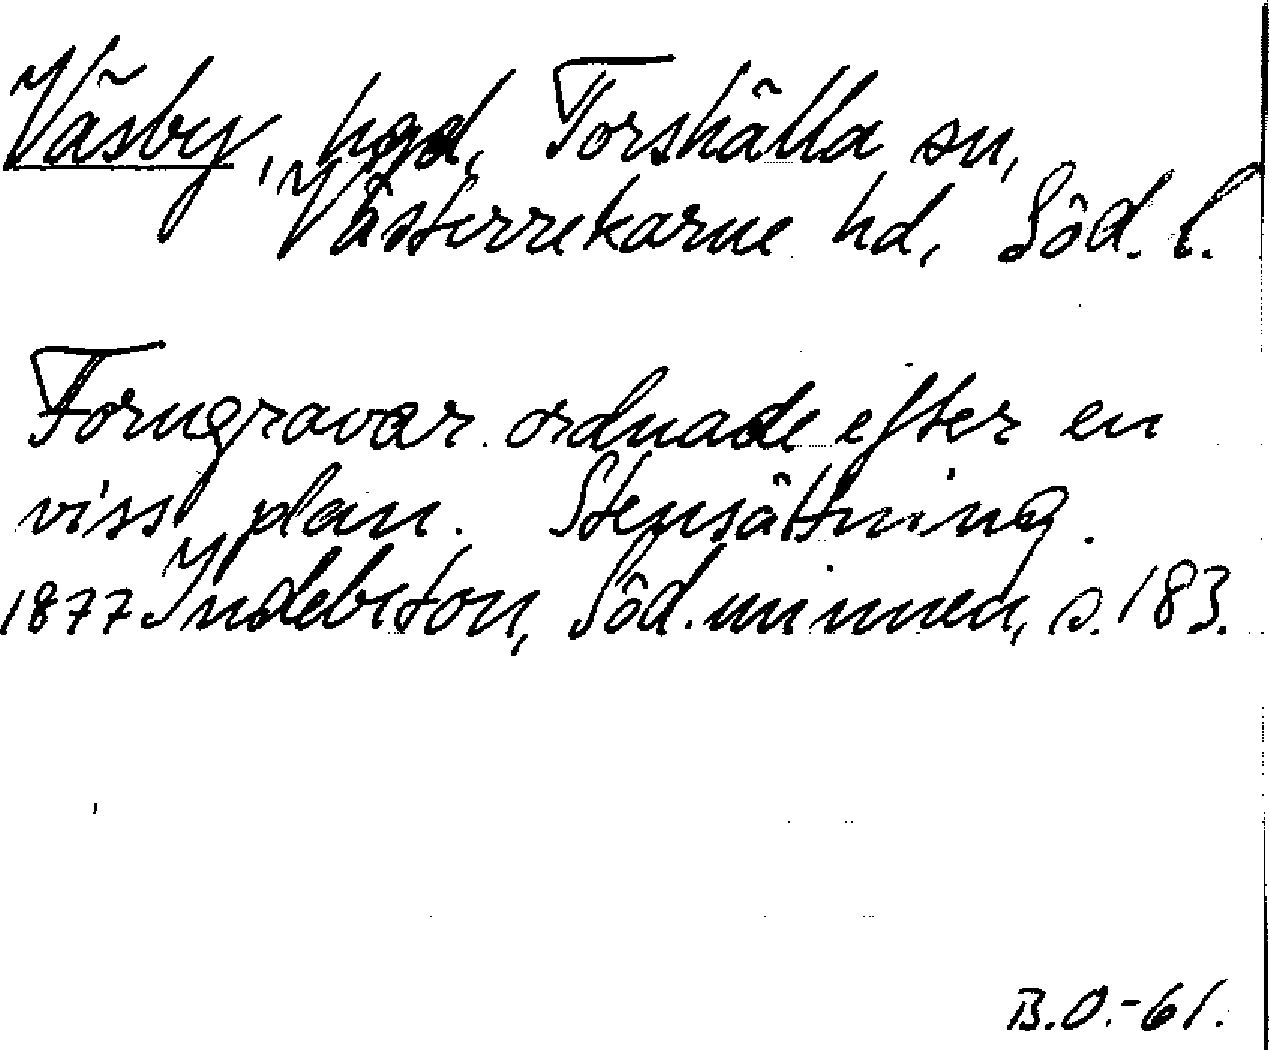 Väsby, hgd, Torshälla sn,
Västerrekarne hd, Söd. l.
Forngravar ordnade efter en
viss plan. Stensättning.
1877 Indebetou, Söd. minnen, s. 183.
B.O.-61.